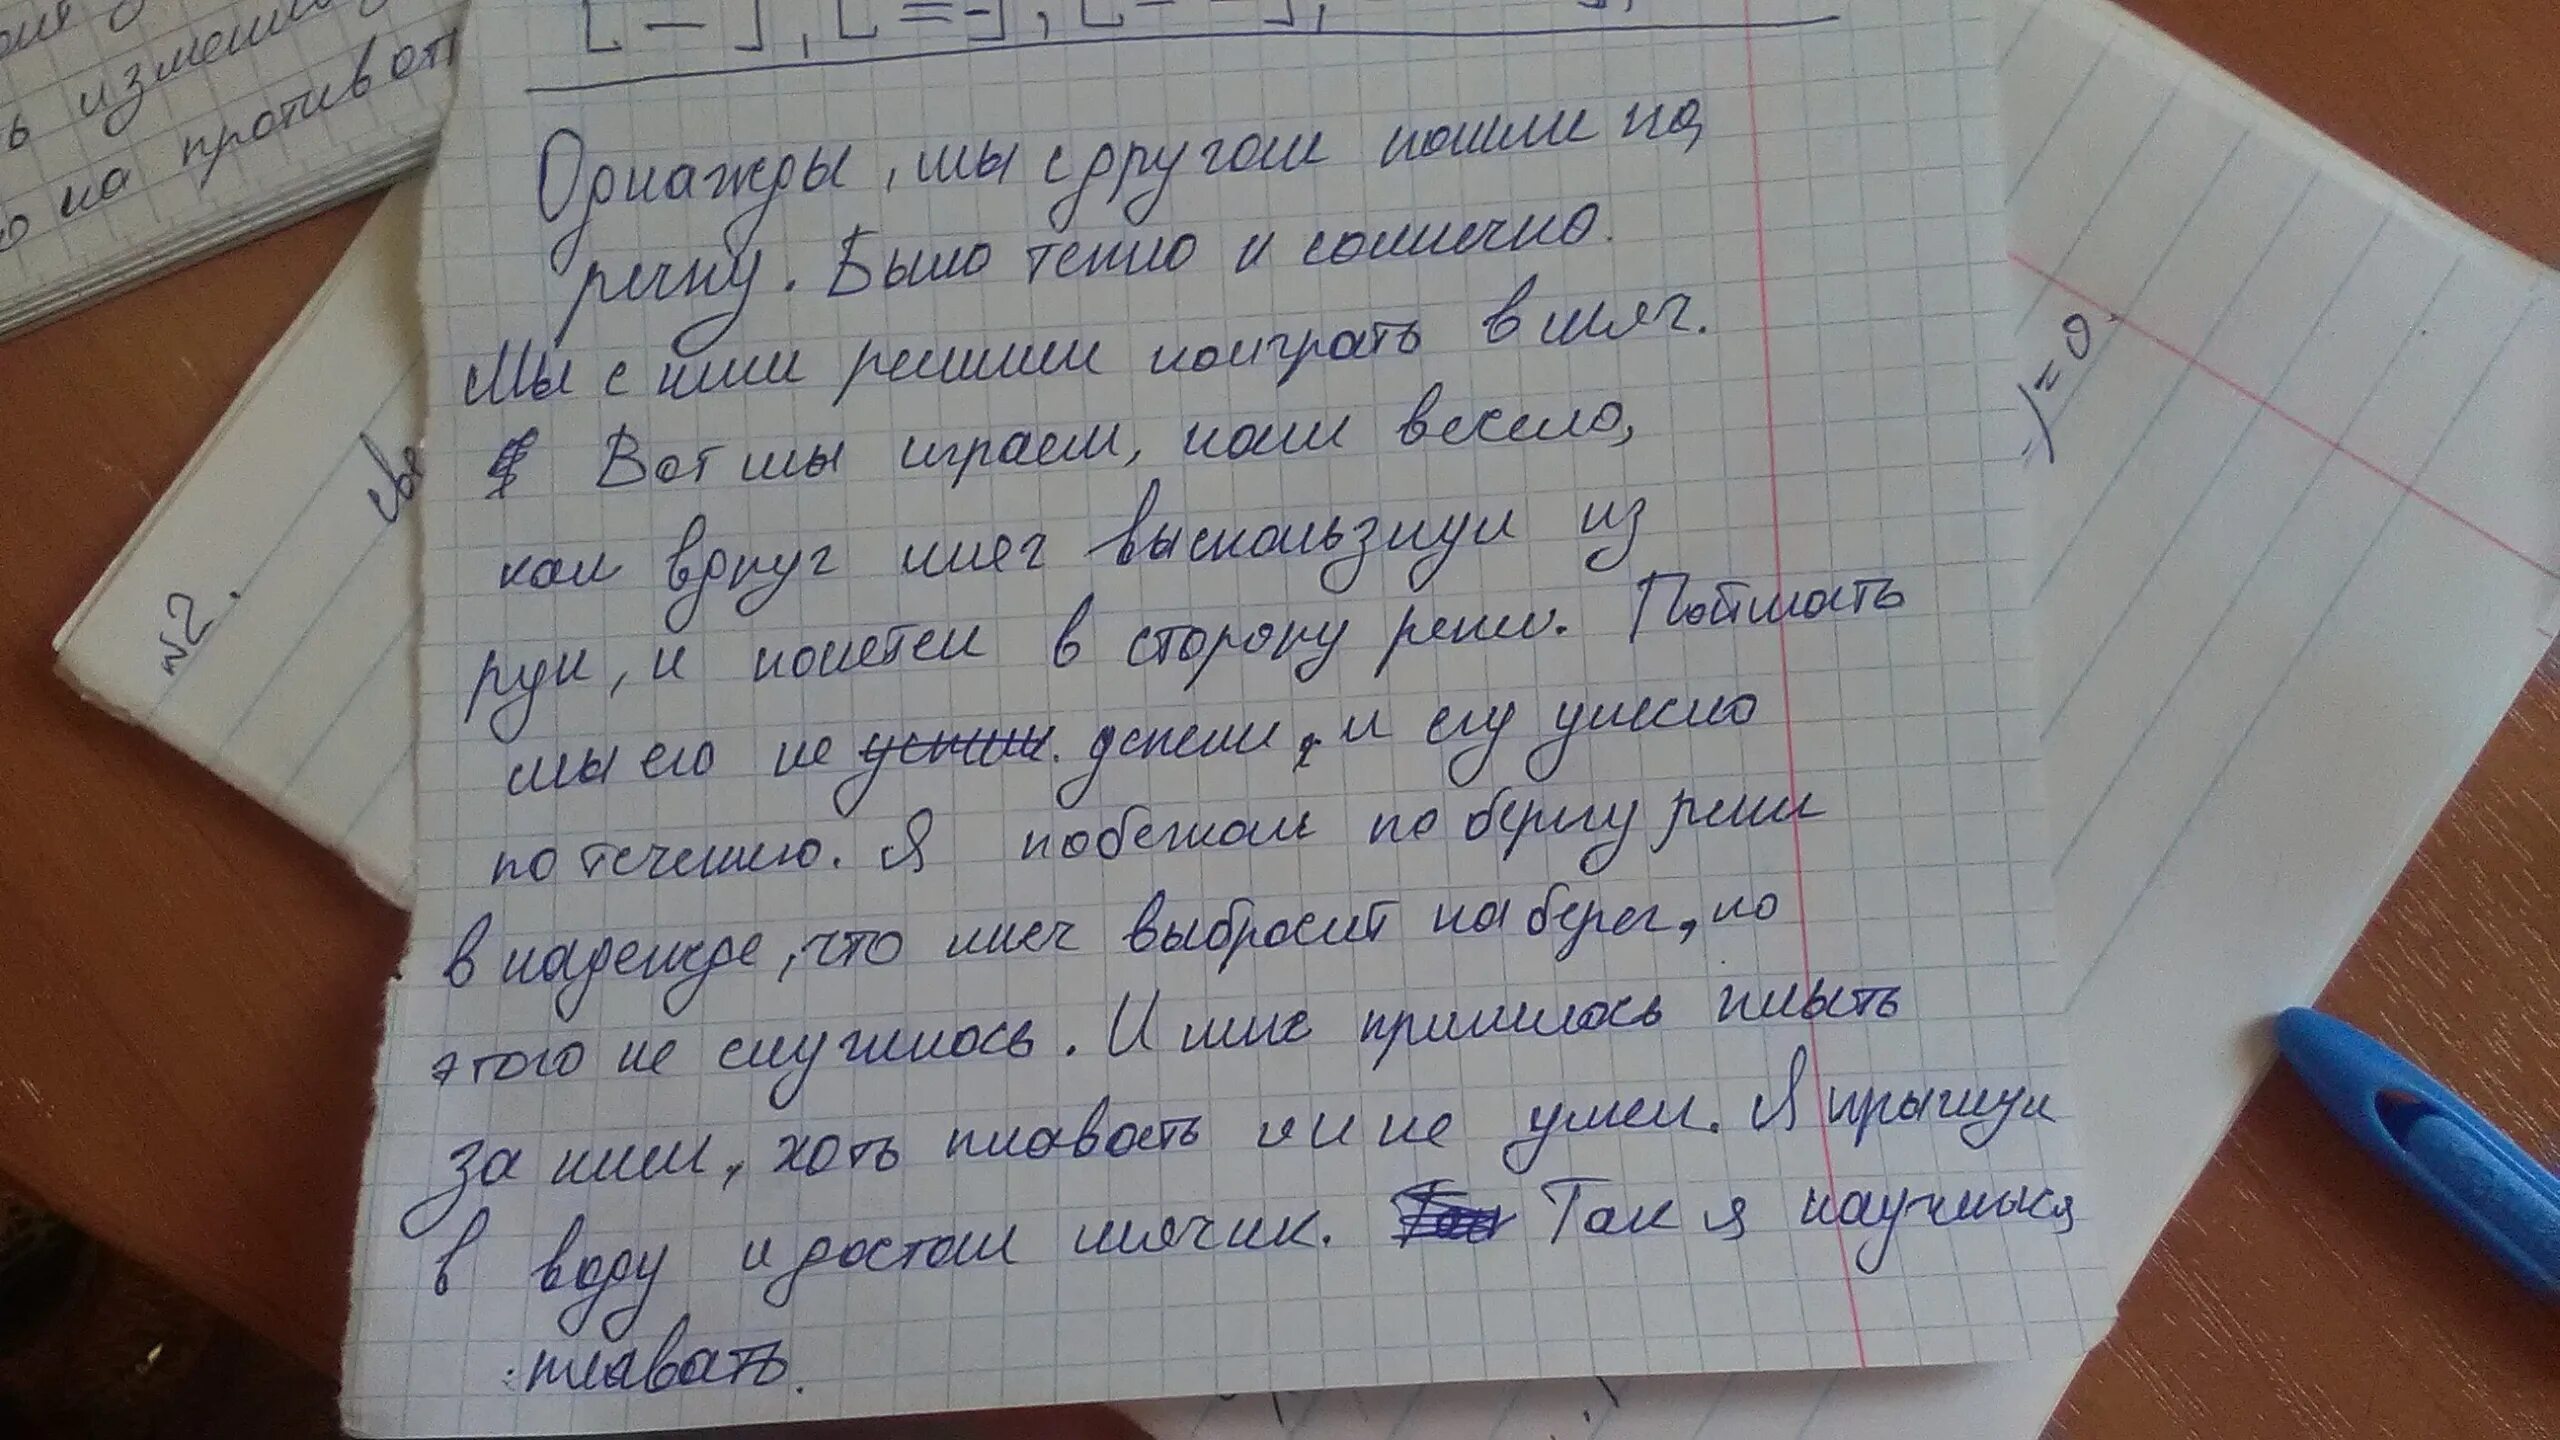 ь изменить
о на противоп
[ — ], [ = - ], [ - - ],
Однажды, мы с другом пошли на
речку. Было тепло и солнечно.
Мы с ним решили поиграть в мяч.
Вот мы играем, нам весело,
как вдруг мяч выскользнул из
рук, и полетел в сторону реки. Поймать
мы его не успели. успели, и его унесло
по течению. Я побежал по берегу реки
в надежде, что мяч выбросит на берег, но
этого не случилось. И мне пришлось плыть
за ним, хоть плавать я и не умел. Я прыгнул
в воду и достал мячик. Так я научился
плавать.
№2.
)=0.